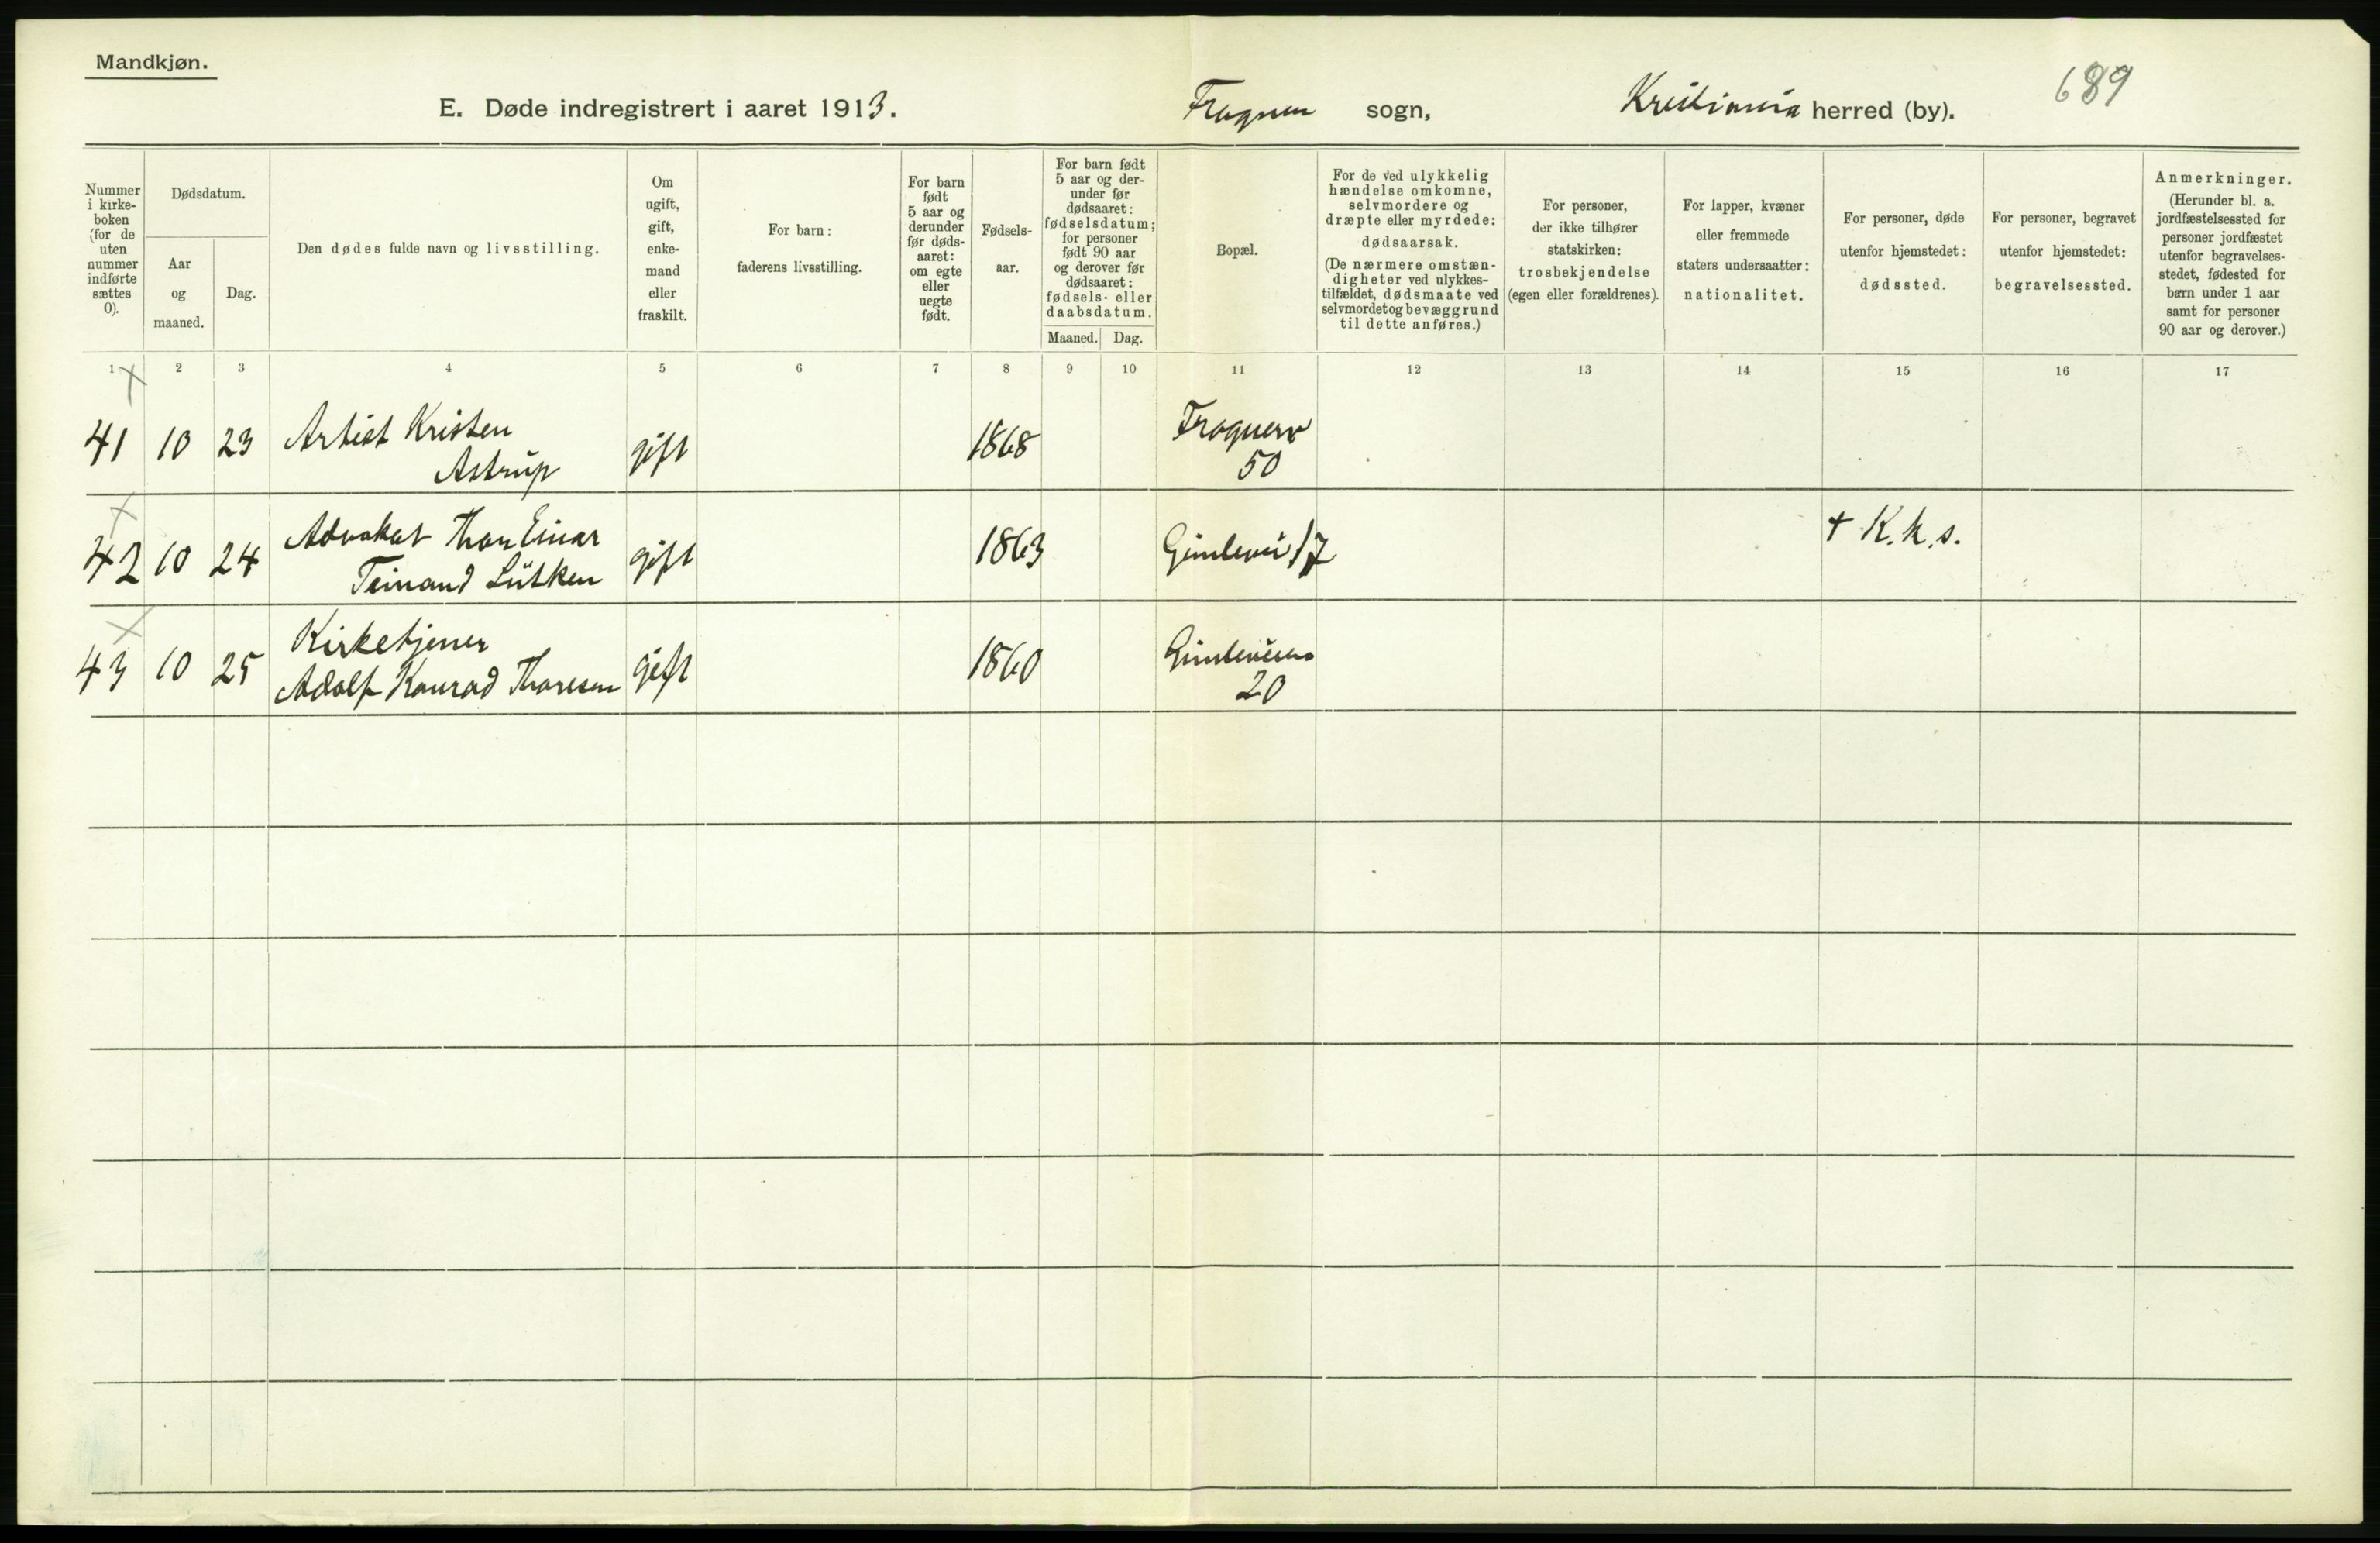 Mandkjøn.
E. Døde indregistrert i aaret 1913. Frogner sogn, Kristiania herred (by). 689
Nummer
i kirke-
boken
(for de
uten
nummer
indførte
sættes
0).
Dødsdatum.
Aar
og
maaned.
Dag.
Den dødes fulde navn og livsstilling.
Om
ugift,
gift,
enke-
mand
eller
fraskilt.
For barn:
faderens livsstilling.
For barn
født
5 aar og
derunder
før døds-
aaret:
om egte
eller
uegte
født.
Fødsels-
aar.
For barn født
5 aar og der-
under før
dødsaaret:
fødselsdatum;
for personer
født 90 aar
og derover før
dødsaaret:
fødsels- eller
daabsdatum.
Maaned. Dag.
Bopæl.
For de ved ulykkelig
hændelse omkomne,
selvmordere og
dræpte eller myrdede:
dødsaarsak.
(De nærmere omstæn-
digheter ved ulykkes-
tilfældet, dødsmaate ved
selvmord et og bevæggrund
til dette anføres.)
For personer,
der ikke tilhører
statskirken:
trosbekjendelse
(egen eller forældrenes).
For lapper, kvæner
eller fremmede
staters undersaatter:
nationalitet.
For personer, døde
utenfor hjemstedet:
dødssted.
For personer, begravet
utenfor hjemstedet:
begravelsessted.
Anmerkninger.
(Herunder bl. a.
jordfæstelsessted for
personer jordfæstet
utenfor begravelses-
stedet, fødested for
barn under 1 aar
samt for personer
90 aar og derover.)
1 2 3 4 5 6 7 8 9 10 11 12 13 14 15 16 17
41 10 23 Artist Kristen
Astrup gift 1868 Frognerv
50
42 10 24 Advokat Thor Einar
Lütken gift 1863 Gimlevei 17 + K. k. s.
43 10 25 Kirketjener
Adolf Konrad Thoresen gift 1860 Gimleveien
20